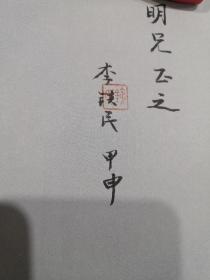 明兄正之
李铁民 甲申